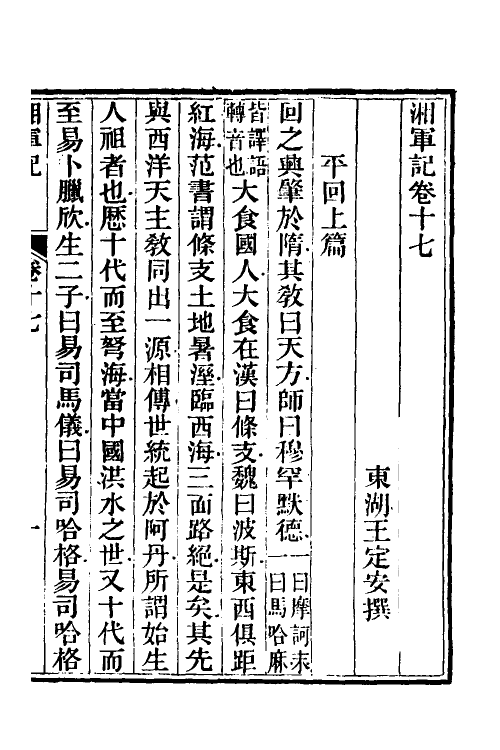 湘軍記卷十七
東湖王定安撰
平回上篇
回之興肇於隋其教曰天方師曰穆罕默德一曰摩訶末一曰馬哈麻
皆譯語轉音也大食國人大食在漢曰條支魏曰波斯東西俱距
紅海范書謂條支土地暑溼臨西海三面路絕是矣其先
與西洋天主教同出一源相傳世統起於阿丹所謂始生
人祖者也歷十代而至弩海當中國洪水之世又十代而
至易卜臘欣生二子曰易司馬儀曰易司哈格易司哈格
湘軍記 卷十七 一